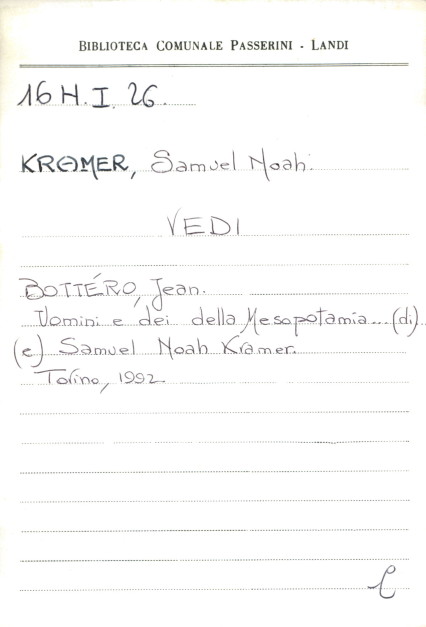 BIBLIOTECA COMUNALE PASSERINI - LANDI
16 H. I. 26.
KRAMER, Samuel Noah.
VEDI
BOTTÉRO, Jean.
Uomini e dei della Mesopotamia... (di)
(e) Samuel Noah Kramer.
Torino, 1992.